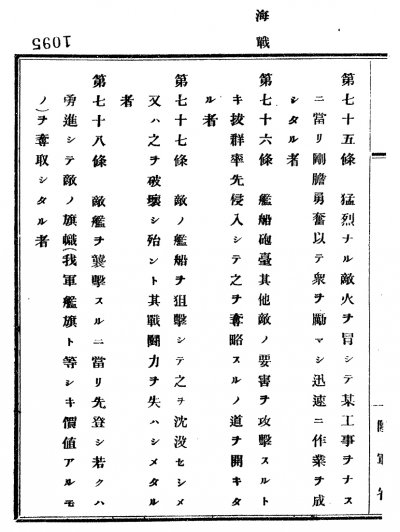 海戦
1095
第七十五條 猛烈ナル敵火ヲ冒シテ某工事ヲナス
ニ當リ剛膽勇奮以テ衆ヲ勵マシ迅速ニ作業ヲ成
シタル者
第七十六條 艦船砲臺其他敵ノ要害ヲ攻擊スルト
キ拔群率先侵入シテ之ヲ奪略スルノ道ヲ開キタ
ル者
第七十七條 敵ノ艦船ヲ狙擊シテ之ヲ沈沒セシメ
又ハ之ヲ破壞シ殆ント其戰鬪力ヲ失ハシメタル
者
第七十八條 敵艦ヲ襲擊スルニ當リ先登シ若クハ
勇進シテ敵ノ旗幟(我軍艦旗ト等シキ價値アルモ
ノ)ヲ奪取シタル者